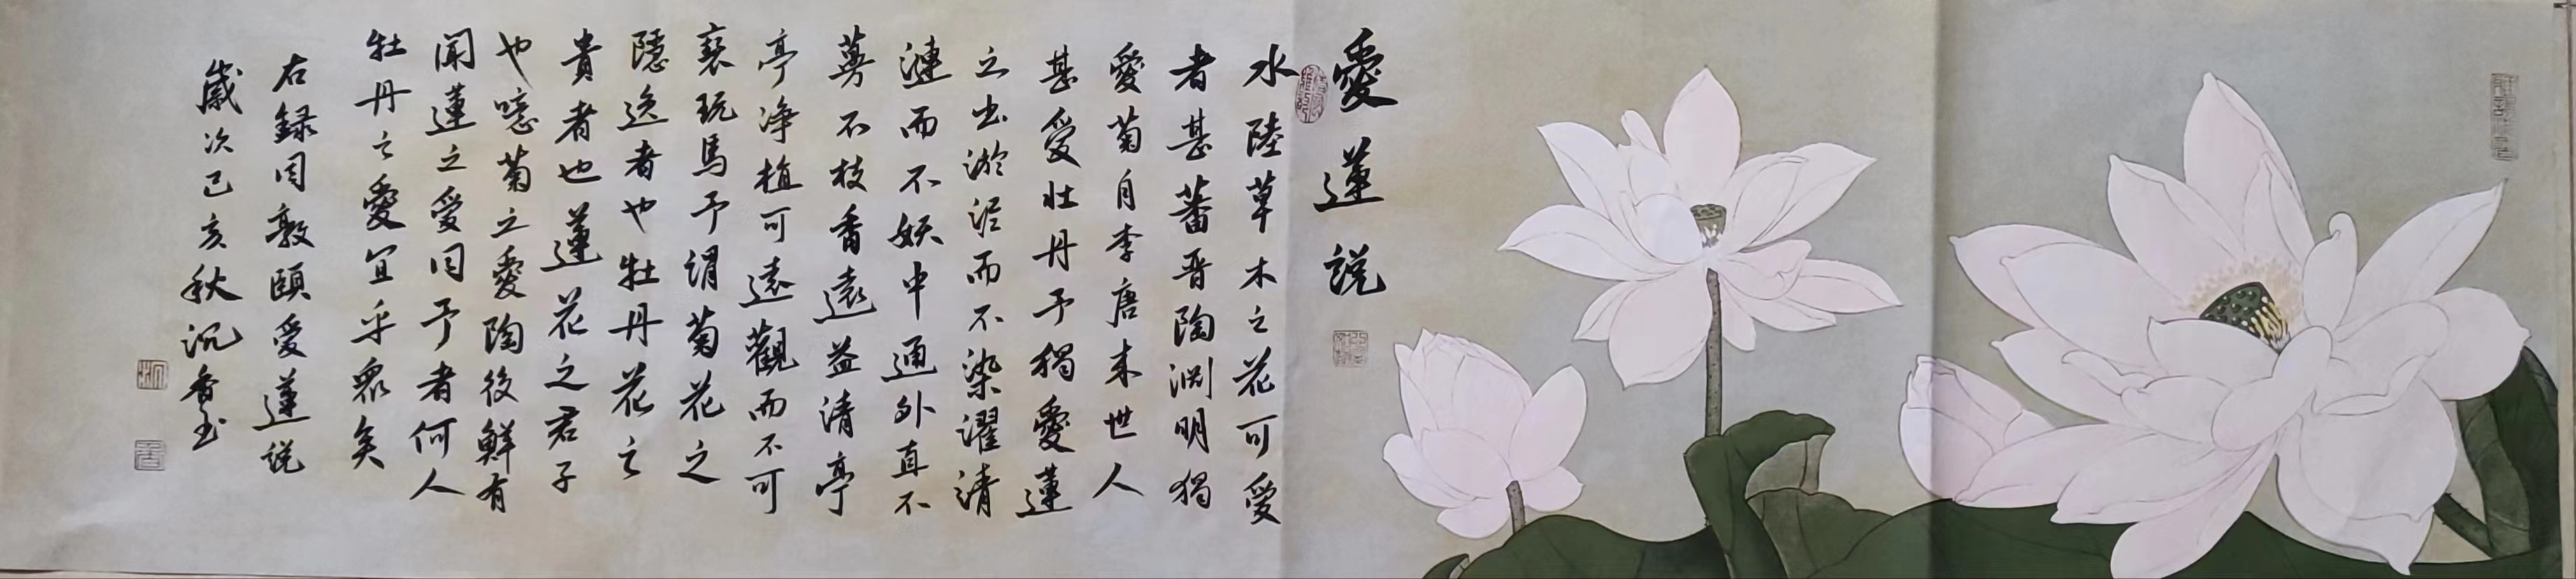 愛蓮説
水陸草木之花可愛
者甚蕃晉陶淵明獨
愛菊自李唐来世人
甚愛牡丹予獨愛蓮
之出淤泥而不染濯清
漣而不妖中通外直不
蔓不枝香遠益清亭
亭净植可遠觀而不可
褻玩焉予謂菊花之
隱逸者也牡丹花之
貴者也蓮花之君子
也噫菊之愛陶後鮮有
聞蓮之愛同予者何人
牡丹之愛宜乎衆矣
右録周敦頤愛蓮説
歲次己亥秋沉香書